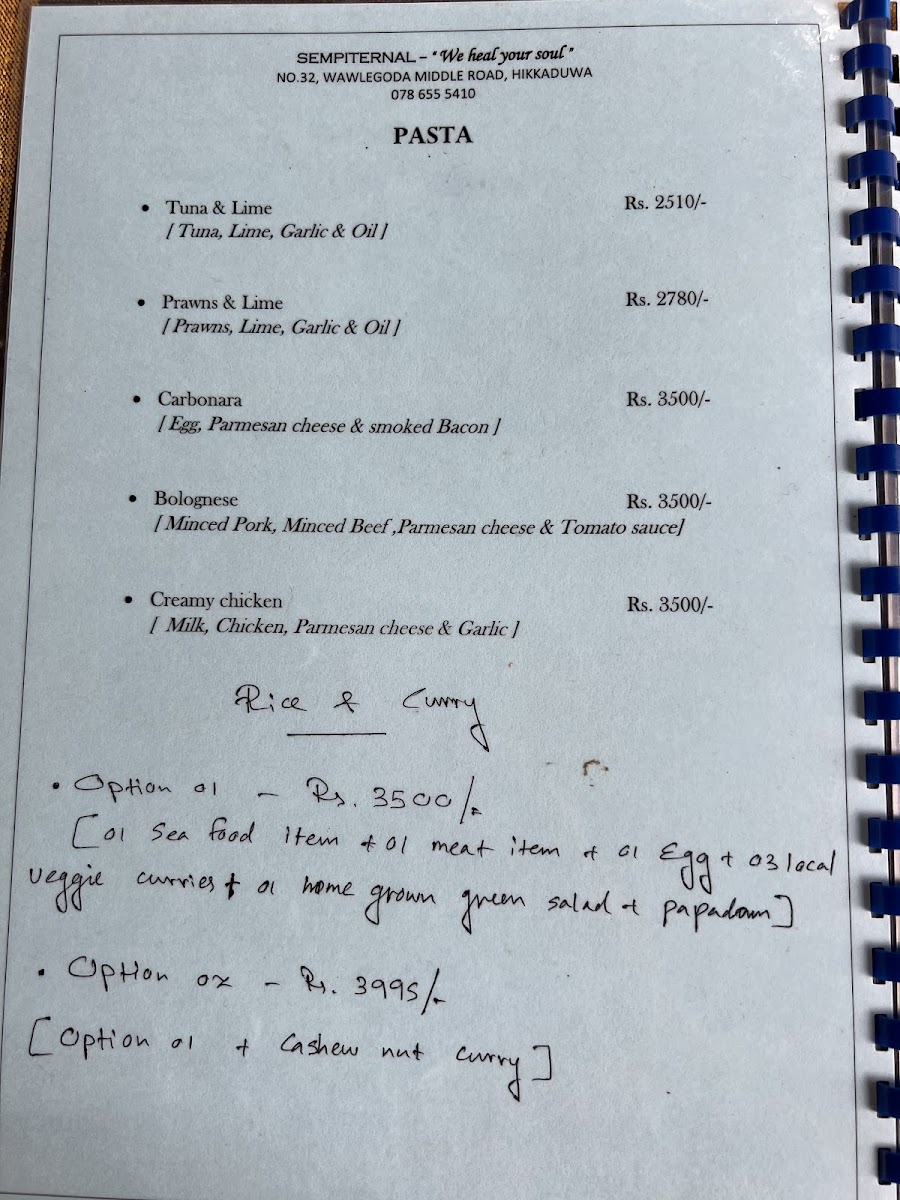 SEMPITERNAL – "We heal your soul"
NO.32, WAWLEGODA MIDDLE ROAD, HIKKADUWA
078 655 5410
PASTA
• Tuna & Lime Rs. 2510/-
[ Tuna, Lime, Garlic & Oil ]
• Prawns & Lime Rs. 2780/-
[ Prawns, Lime, Garlic & Oil ]
• Carbonara Rs. 3500/-
[ Egg, Parmesan cheese & smoked Bacon ]
• Bolognese Rs. 3500/-
[ Minced Pork, Minced Beef ,Parmesan cheese & Tomato sauce]
• Creamy chicken Rs. 3500/-
[ Milk, Chicken, Parmesan cheese & Garlic ]
Rice & Curry
• Option 01 – Rs. 3500/-
[01 Sea food item + 01 meat item + 01 Egg + 03 local
veggie curries + 01 home grown green salad + papadam]
• Option 02 – Rs. 3995/-
[Option 01 + Cashew nut curry]